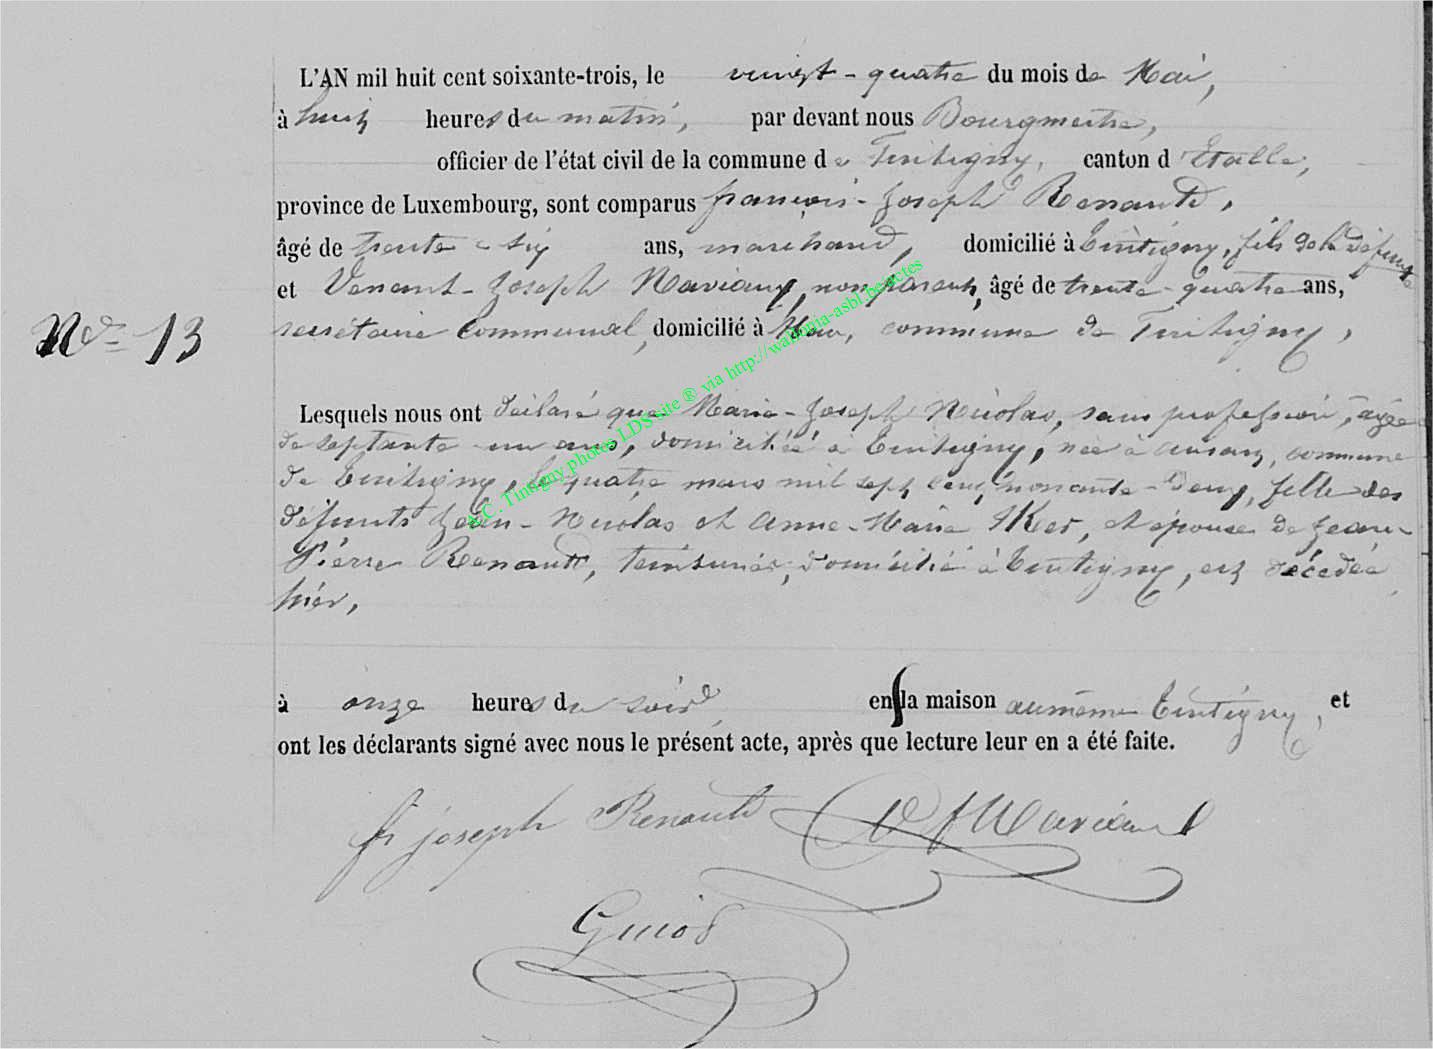 L'AN mil huit cent soixante-trois, le vingt-quatre du mois de Mai,
à huit heures du matin, par devant nous Bourgmestre,
officier de l'état civil de la commune de Tintigny, canton d'Etalle,
province de Luxembourg, sont comparus françois-Joseph Renauld,
âgé de trente-six ans, marchand, domicilié à Tintigny, fils de la défunte
et Venant-Joseph Maviaux, non parent, âgé de trente-quatre ans,
N° 13
secrétaire Communal, domicilié à commune de Tintigny,
Lesquels nous ont déclaré que Marie-Joseph Nicolas, sans profession, âgée
de septante-un ans, domiciliée à Tintigny, née à Ansart, commune
de Tintigny, le quatre mars mil sept cent nonante-deux, fille des
défunts Jean-Nicolas et Anne-Marie et épouse de Jean-
Pierre Renauld, teinturier, domicilié à Tintigny, est décédée
hier,
à onze heures du soir en la maison au même Tintigny, et
ont les déclarants signé avec nous le présent acte, après que lecture leur en a été faite.
fr joseph Renauld V J Maviaux
Guiot
A.C. Tintigny photos LDS site ® via http://wallonia-asbl.be/actes